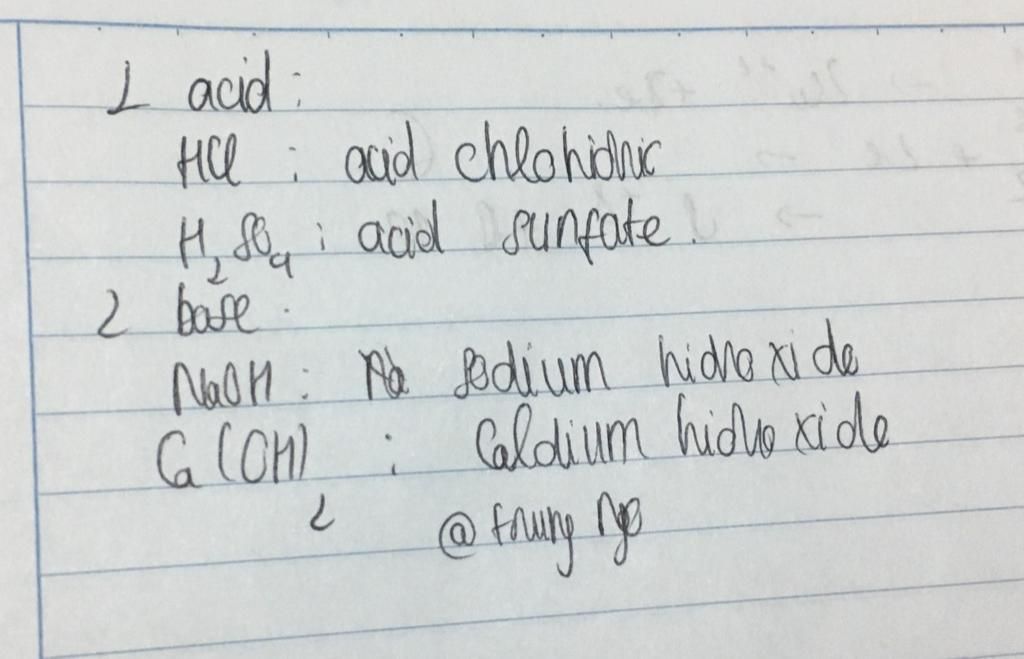 1 acid:
HCl : acid chlohidric
H2SO4 : acid sunfate.
2 base.
NaOH : Na sodium hidroxide
Ca(OH)2 : Caldium hidroxide
@trung